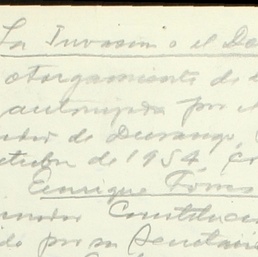 La Invasion o el De
otorgamiento de
autorizada por el
dor de Durango,
octubre de 1954,
Enrique Torres
nador Constituci
do por su Secretari